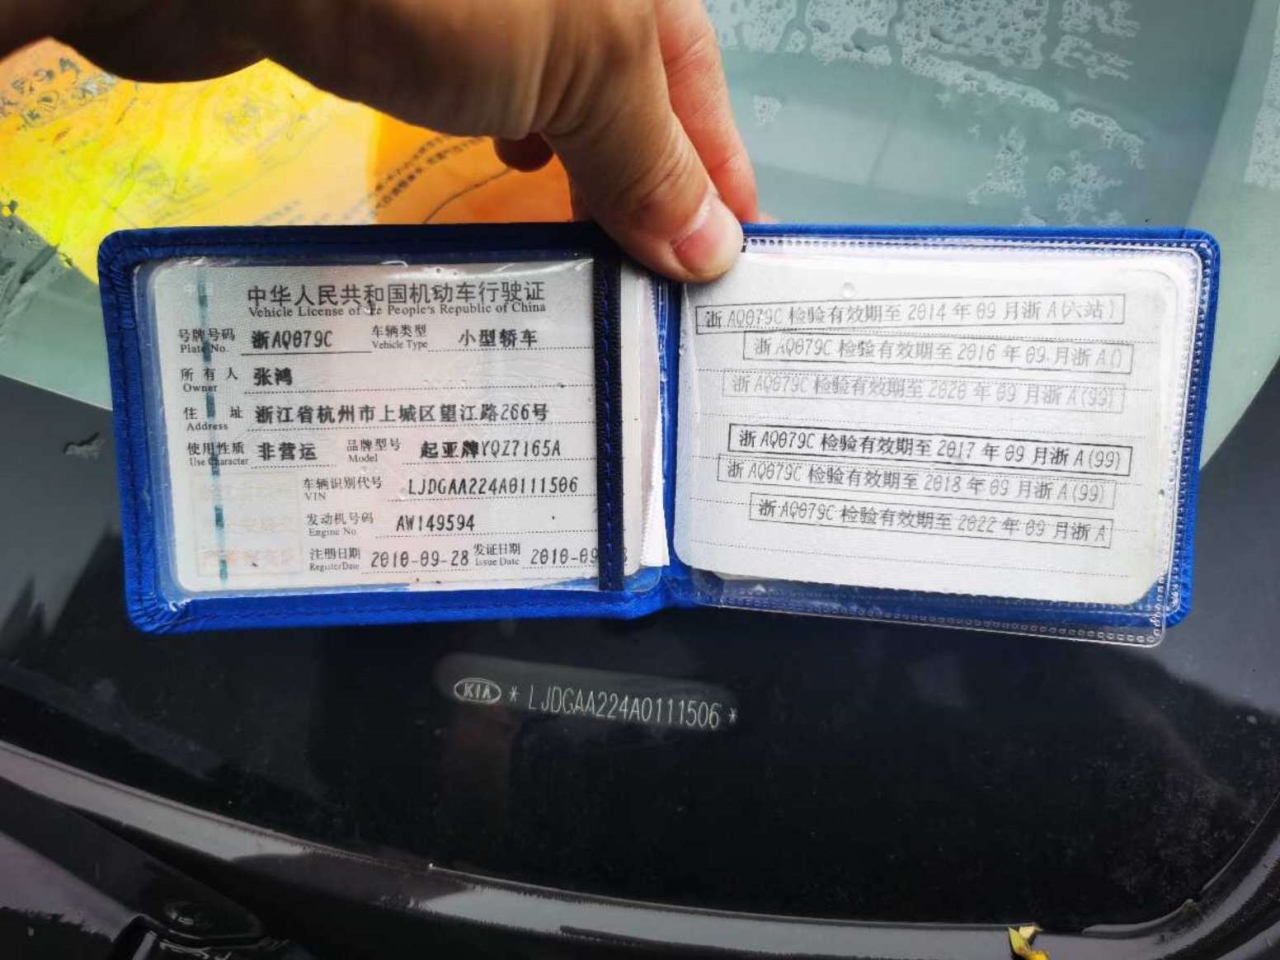 中华人民共和国机动车行驶证
Vehicle License of the People's Republic of China
号牌号码 浙AQ079C 车辆类型 小型轿车
Plate No. Vehicle Type
所有人 张鸿
Owner
住址 浙江省杭州市上城区望江路266号
Address
使用性质 非营运 品牌型号 起亚牌YQZ7165A
Use Character Model
车辆识别代号 LJDGAA224A0111506
VIN
发动机号码 AW149594
Engine No.
注册日期 2010-09-28 发证日期 2010-09
Register Date Issue Date
浙AQ079C 检验有效期至 2014 年 09 月浙 A(六站)
浙 AQ079C 检验有效期至 2016 年 09 月浙 A()
浙 AQ079C 检验有效期至 2020 年 09 月浙 A(99)
浙 AQ079C 检验有效期至 2017 年 09 月浙 A(99)
浙 AQ079C 检验有效期至 2018 年 09 月浙 A(99)
浙 AQ079C 检验有效期至 2022 年 09 月浙 A
KIA * LJDGAA224A0111506 *